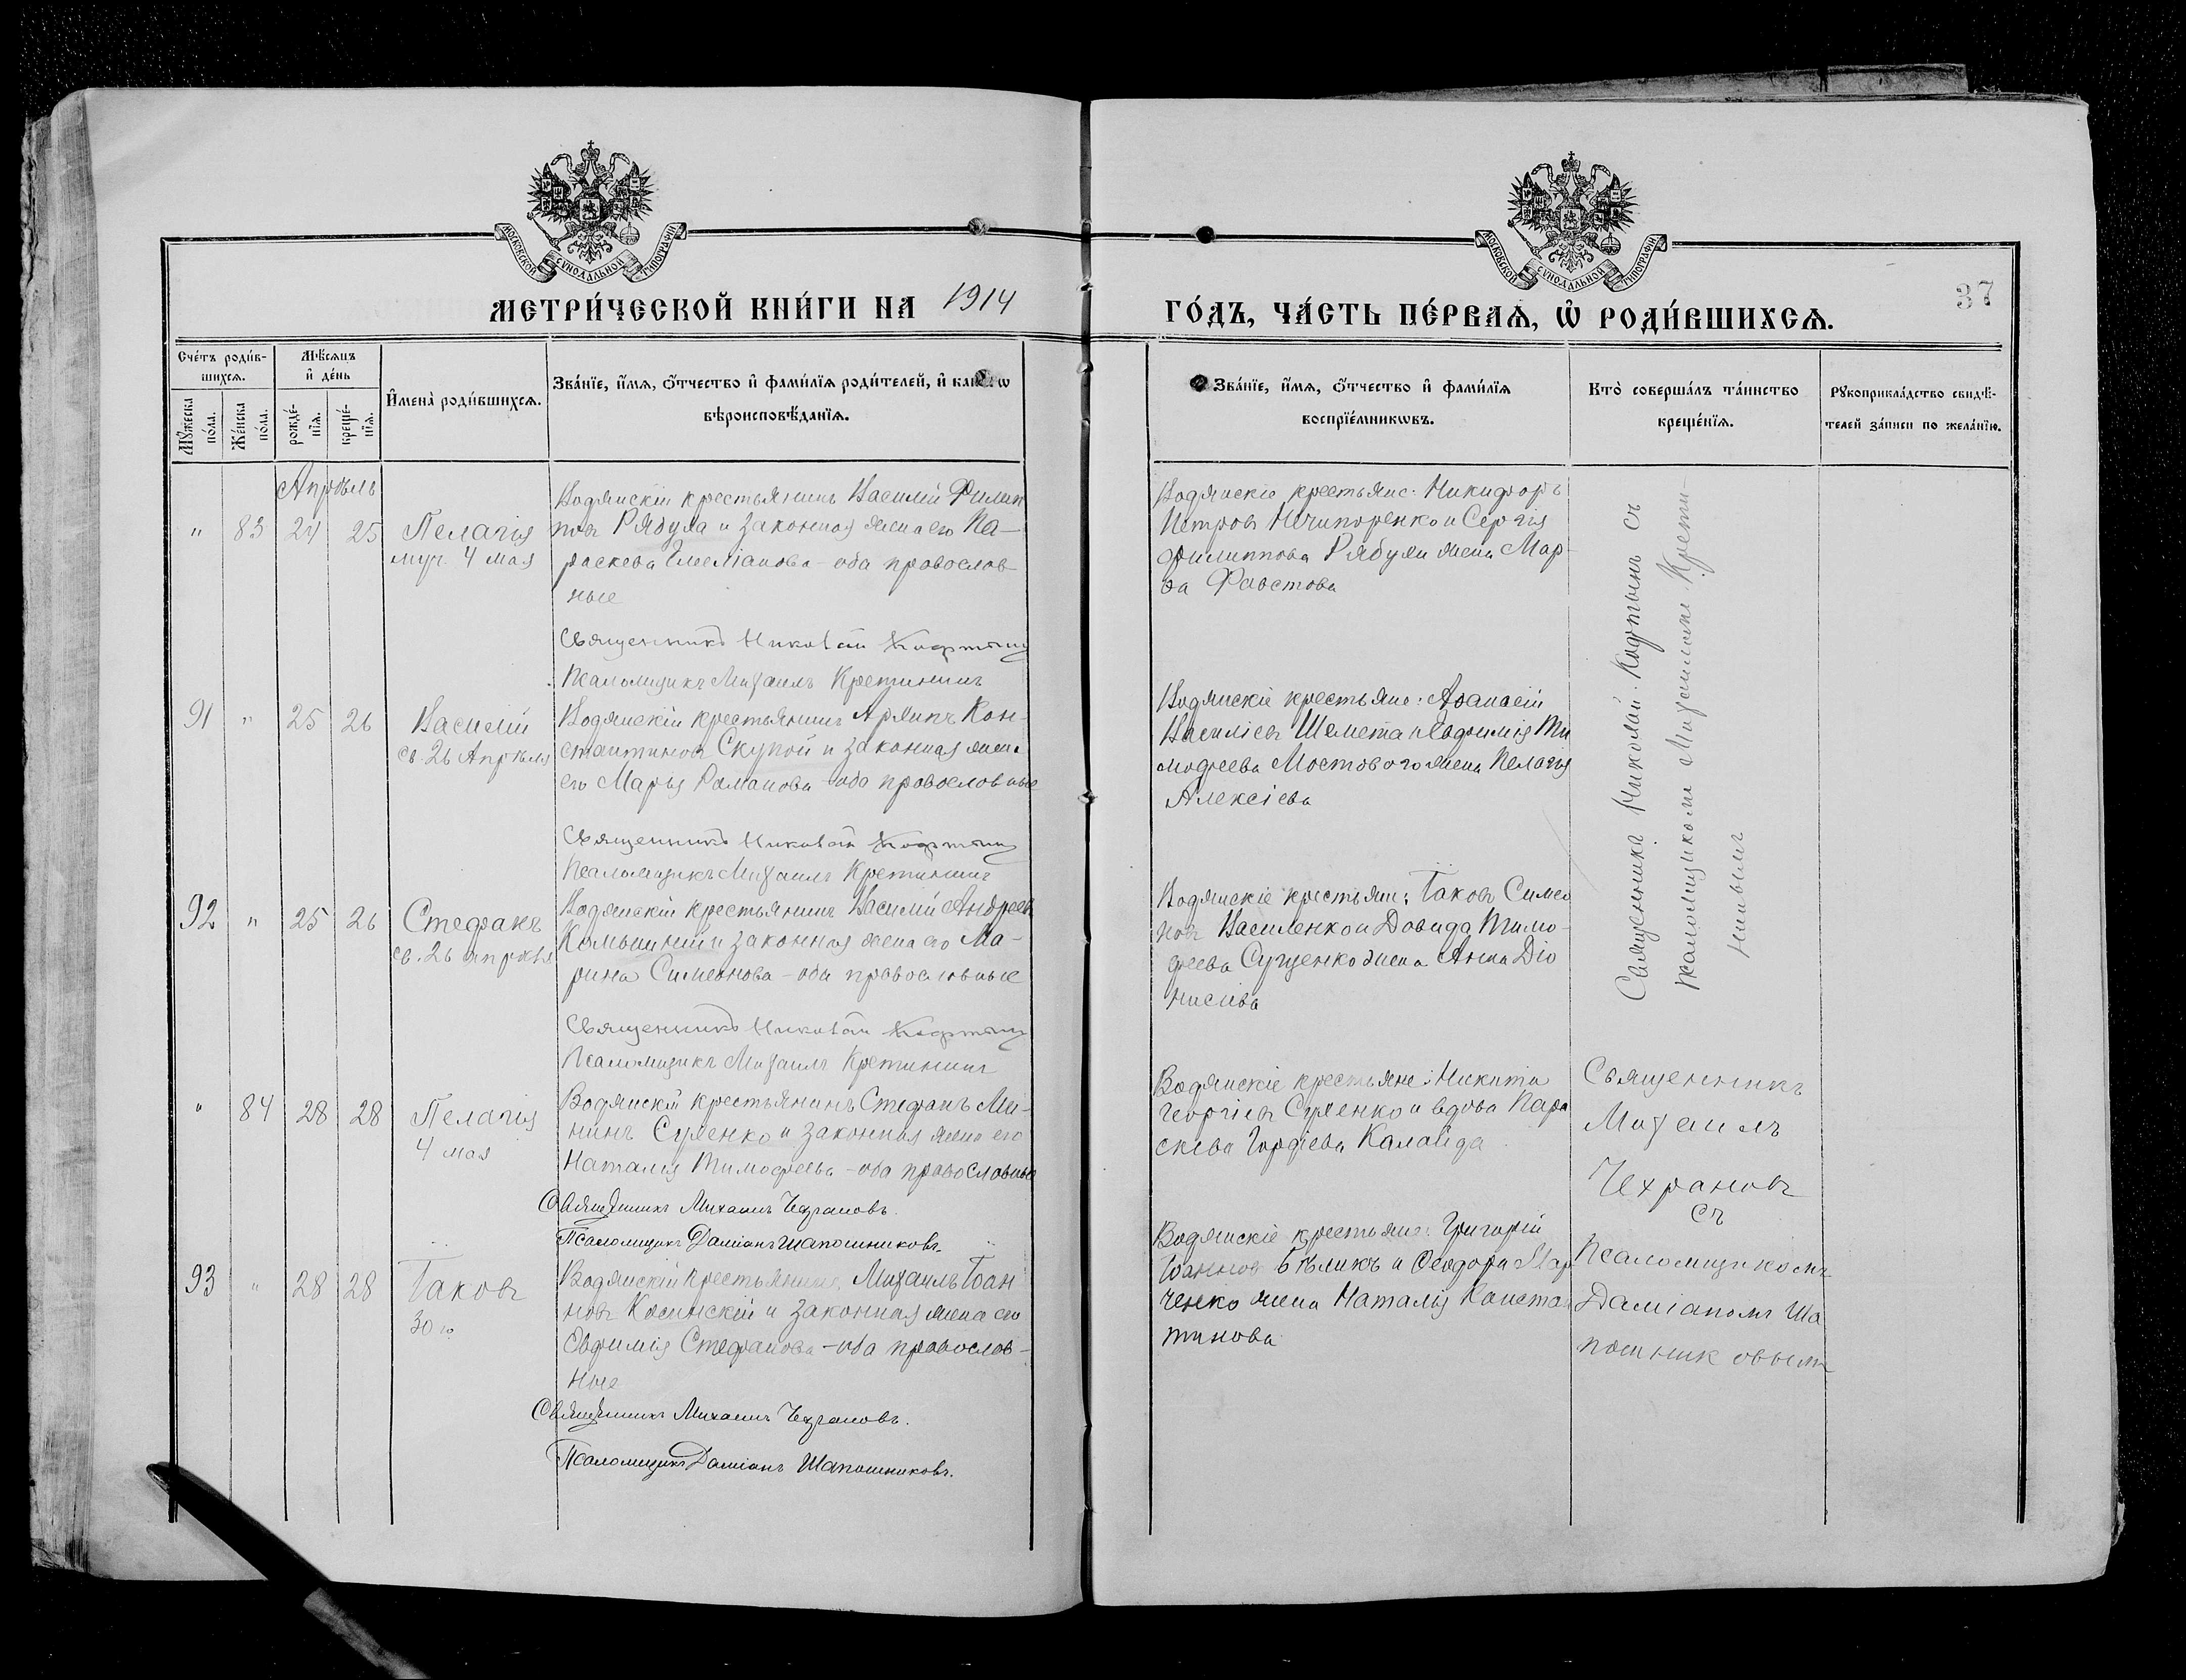 МОСКОВСКОЙ СѴНОДАЛЬНОЙ ТИПОГРАФІИ
МОСКОВСКОЙ СѴНОДАЛЬНОЙ ТИПОГРАФІИ
МЕТРИ́ЧЕСКОЙ КНИ́ГИ НА 1914
ГО́ДЪ, ЧА́СТЬ ПЕ́РВАѦ, Ѡ҆ РОДИ́ВШИХСѦ.
37
Сче́тъ роди́в-
шихсѧ.
Мꙋ́жеска по́ла.
Же́нска по́ла.
Мѣ́сѧцъ
и҆ де́нь
рожде́-
нїѧ.
креще́-
нїѧ.
И҆мена̀ роди́вшихсѧ.
Зва́нїе, и҆́мѧ, ѻ҆́тчество и҆ фами́лїѧ роди́телей, и҆
вѣроисповѣ́данїѧ.
Зва́нїе, и҆́мѧ, ѻ҆́тчество и҆ фами́лїѧ
воспрїе́мникѡвъ.
Кто̀ соверша́лъ та́инство
креще́нїѧ.
Рꙋкоприкла́дство свидѣ́-
телей за́писи по жела́нїю.
Апрѣль
" 83 24 25
Пелагія
муч. 4 мая
Водянскій крестьянинъ Василій Филип
повъ Рябуха и законная жена его Па-
раскева - оба православ
ные
Священникъ Николай Кафтынъ
Псаломщикъ Михаилъ Кретининъ
Водянскіе крестьяне: Никифоръ
Петровъ Нечипоренко и Сергія
Филиппова Рябухи жена Мар
ѳа Фавстова
Священникъ Николай Кафтынъ съ
псаломщикомъ Михаиломъ Крети-
нинымъ
91 " 25 26
Василій
св. 26 Апрѣля
Водянскій крестьянинъ Кон-
стантиновъ Скупой и законная жена
его Марья Романова - оба православные
Священникъ Николай Кафтынъ
Псаломщикъ Михаилъ Кретининъ
Водянскіе крестьяне: Аѳанасій
Василіевъ Шемета и Евфимія Ти
мофеева Мостового жена Пелагія
Алексіева
92 " 25 26
Стефанъ
св. 26 апрѣля
Водянскій крестьянинъ Василій Андреевъ
и законная жена его Ма-
рина Симеонова - оба православные
Священникъ Николай Кафтынъ
Псаломщикъ Михаилъ Кретининъ
Водянскіе крестьяне: Іаковъ Симео
новъ Василенко и Давида Тимо-
феева Сущенко жена Анна Діо
нисіева
" 84 28 28
Пелагія
4 мая
Водянскій крестьянинъ Стефанъ Ми-
нинъ Суленко и законная жена его
Наталія Тимофеева - оба православные
Священникъ Михаилъ Чехрановъ.
Псаломщикъ Даміанъ Шапошниковъ.
Водянскіе крестьяне: Никита
Георгіевъ Суленко и вдова Пара
скева Гордіева Калайда
Священникъ
Михаилъ
Чехрановъ
съ
псаломщикомъ
Даміаномъ Ша
пошниковымъ
93 " 28 28
Іаковъ
30 го
Водянскій крестьянинъ Михаилъ Іоан
новъ Косинскій и законная жена его
Евфимія Стефанова - оба православ-
ные
Священникъ Михаилъ Чехрановъ.
Псаломщикъ Даміанъ Шапошниковъ.
Водянскіе крестьяне: Григорій
Іоанновъ Бѣликъ и Ѳеодора Мар
ченко жена Наталія Конста
тинова